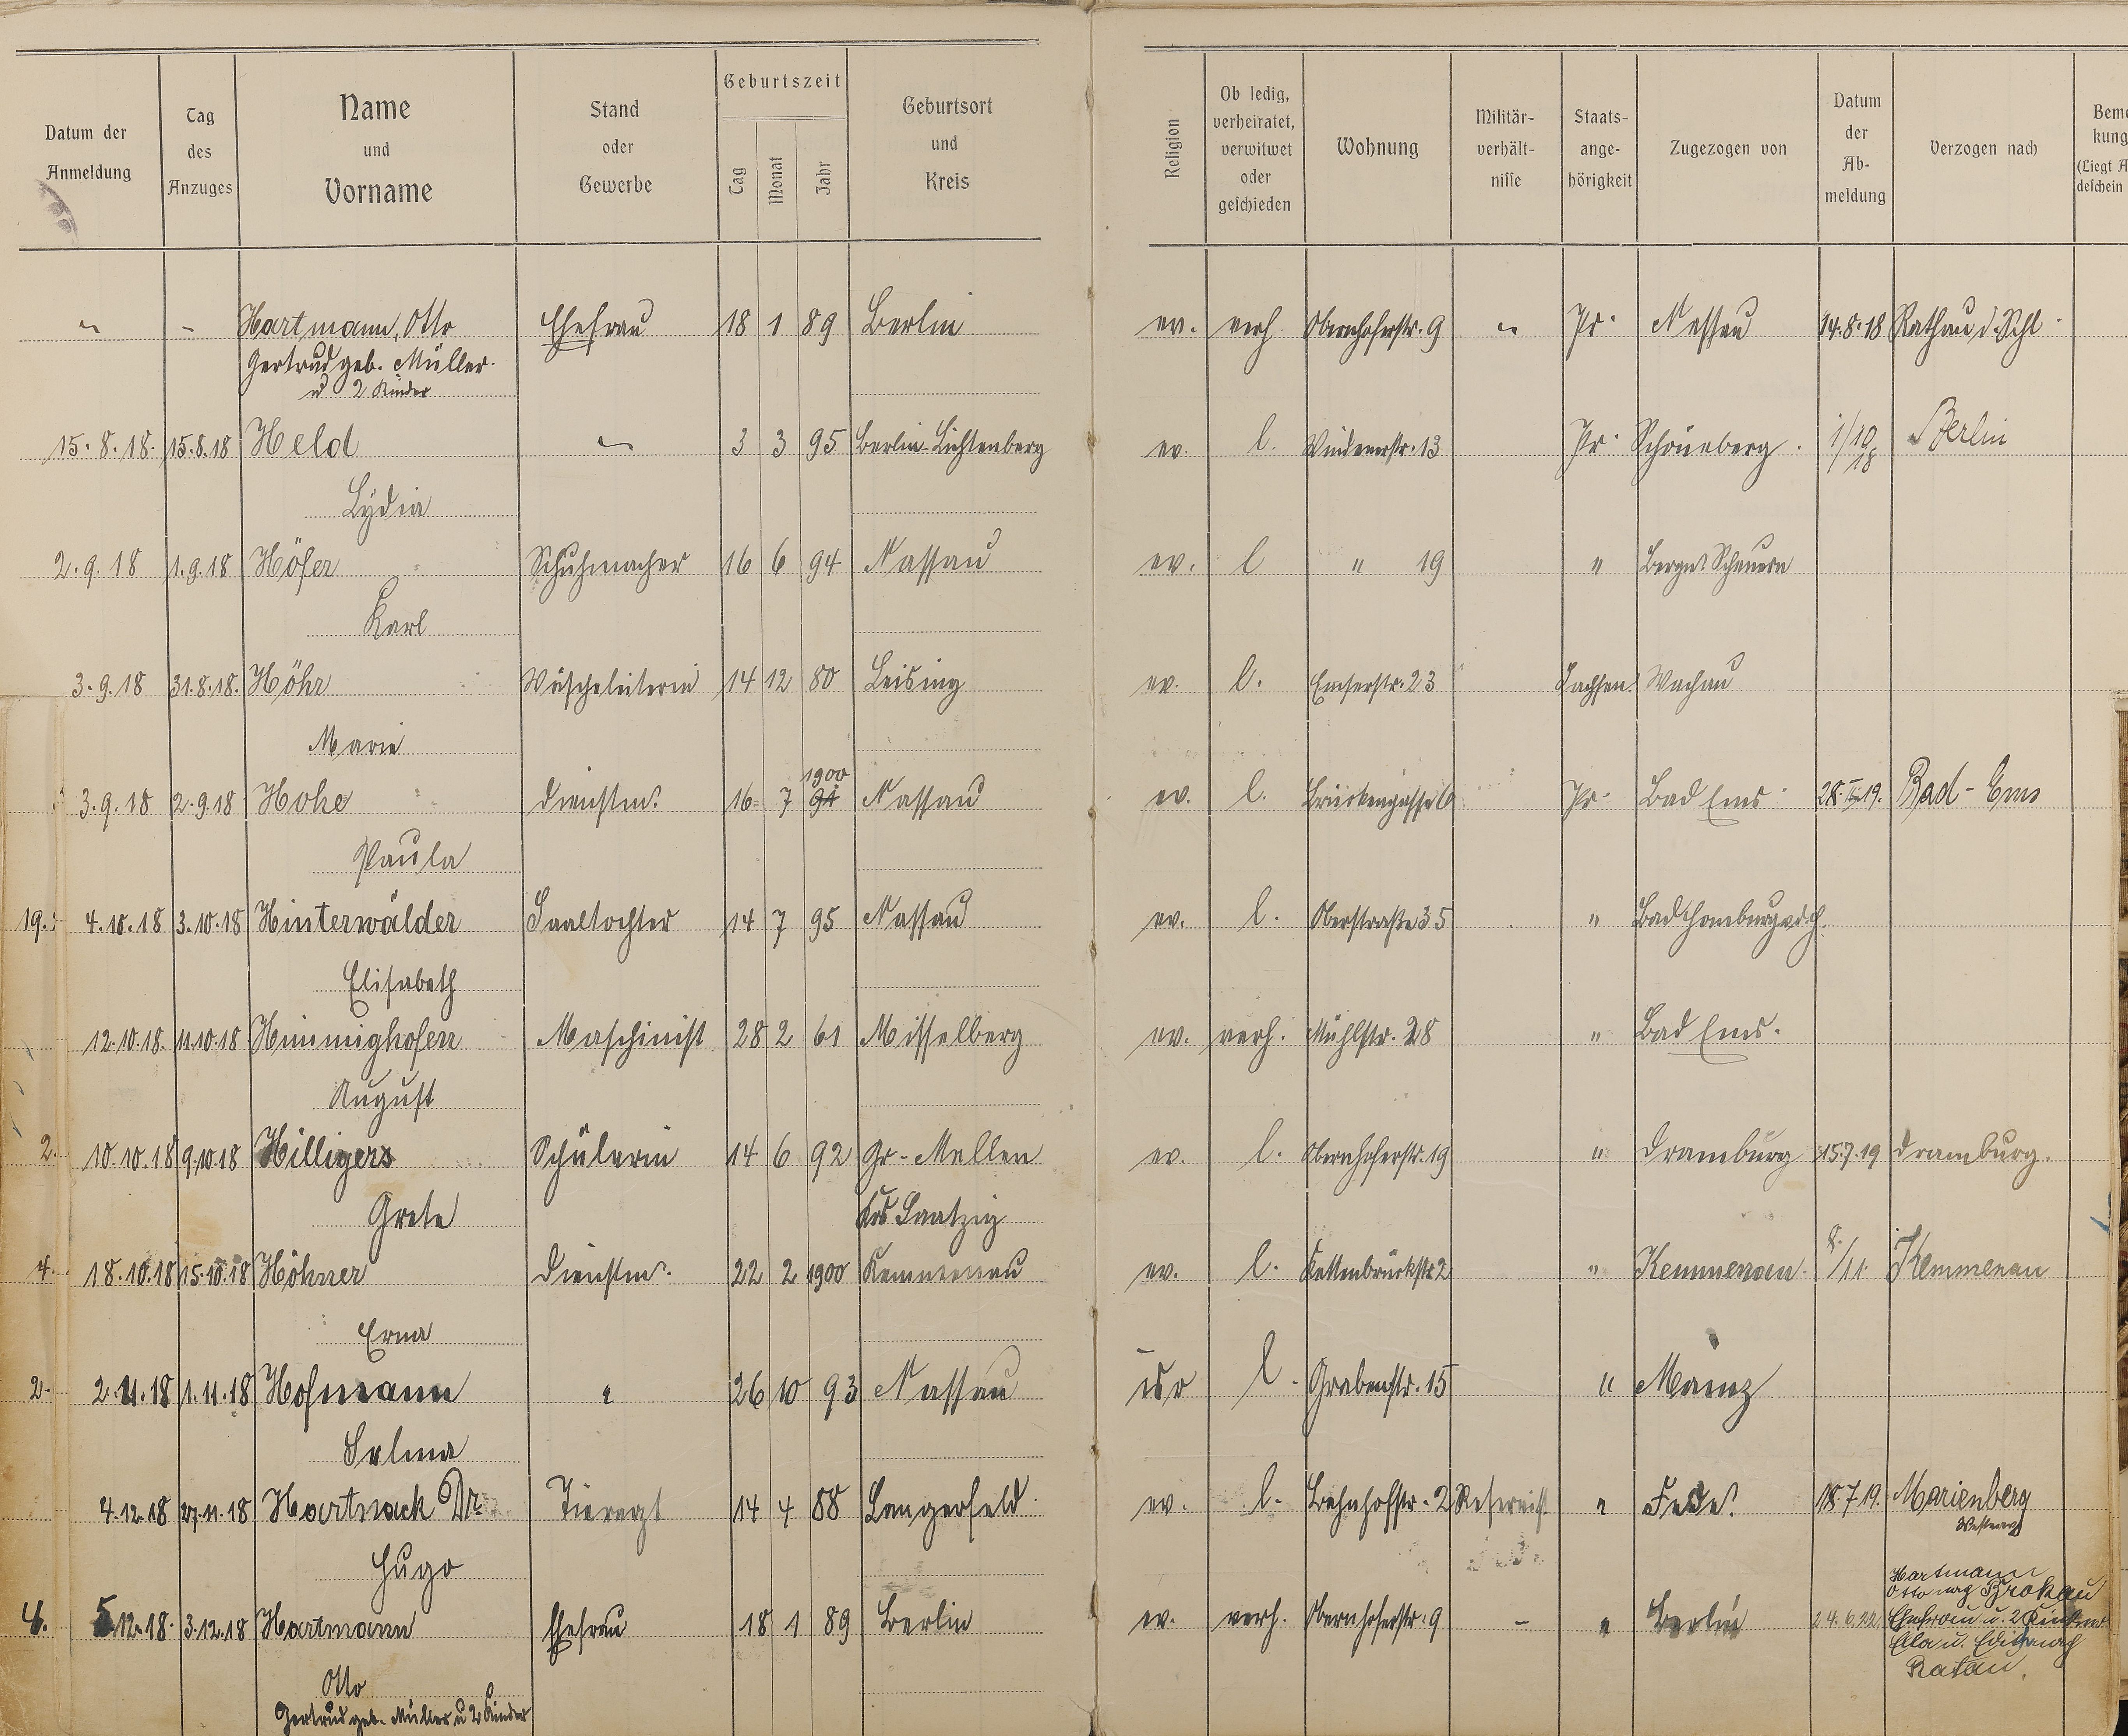 Datum der Anmeldung | Tag des Anzuges | Name und Vorname | Stand oder Gewerbe | Geburtszeit Tag Monat Jahr | Geburtsort und Kreis | Religion | Ob ledig, verheiratet, verwitwet oder geschieden | Wohnung | Militär-verhält-nisse | Staats-ange-hörigkeit | Zugezogen von | Datum der Ab-meldung | Verzogen nach
" - Hartmann, Otto Ehefrau 18 1 89 Berlin ev. verh. Obernhoferstr. 9 " Pr. Nassau 14.8.18 Rathau i. Schl.
Gertrud geb. Müller
u 2 Kinder
15.8.18. 15.8.18 Held 3 3 95 Berlin-Lichtenberg ev. l. 13 Pr. Schöneberg. 1/10 18 Berlin
Lydia
2.9.18 1.9.18 Höfer Schuhmacher 16 6 94 Nassau ev. l " 19 " Bergn. Scheuern
Karl
3.9.18 31.8.18. Höhr 14 12 80 Leisnig ev. l. Emserstr. 23 Sachsen. Wachau
Marie
3.9.18 2.9.18 Hohe Dienstm. 16 7 1900 Nassau ev. l. Brückengasse 6 Pr. Bad Ems 19. Bad-Ems
Paula
19. 4.10.18 3.10.18 Hinterwälder Saaltochter 14 7 95 Nassau ev. l. Oberstraße 35 " Bad Homburg v.d.H.
Elisabeth
12.10.18. 11.10.18 Himmighofen Maschinist 28 2 61 Misselberg ev. verh. Mühlstr. 28 " Bad Ems.
August
2. 10.10.18 9.10.18 Hilligers Schülerin 14 6 92 Gr-Mellen ev. l. Obernhoferstr. 19 " Dramburg 15.7.19 Dramburg.
Grete Krs Saatzig
4. 18.10.18 15.10.18 Höhner Dienstm. 22 2 1900 Kemmenau ev. l. Kettenbrückstr 2 " Kemmenau 8./11. Kemmenau
Erna
2. 2.11.18 1.11.18 Hofmann " 26 10 93 Nassau isr l. Grabenstr. 15 " Mainz
Selma
4.12.18 27.11.18 Hartnack Dr. Tierarzt 14 4 88 Langerfeld ev. l. Bahnhofstr. 2 Reservist " 18.7.19. Marienberg
Westerw.
Hugo
Hartmann
Otto nach Brokau
4. 5.12.18. 3.12.18 Hartmann Ehefrau 18 1 89 Berlin ev. verh. Obernhoferstr. 9 - " Berlin 24.6.22 Ehefrau u. 2 Kinder
Otto
Ratau.
Gertrud geb. Müller u 2 Kinder